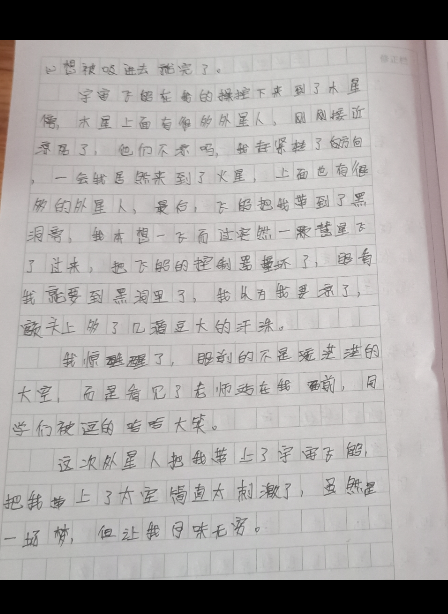 心想被吸进去就完了。
宇宙飞船在我的操控下来到了水星
旁，水星上面有很多外星人，刚刚接近
了，他们不
，一会我居然来到了火星，上面也有很
多的外星人，最后，飞船把我带到了黑
洞旁，我本想一飞而过突然一颗彗星飞
了过来，把飞船的控制器撞坏了，眼看
我就要到黑洞里了，我以为我要凉了，
额头上多了几道豆大的汗珠。
我惊醒了，眼前的不是茫茫的
太空，而是看见了老师站在我面前，同
学们被逗的哈哈大笑。
这次外星人把我带上了宇宙飞船，
把我带上了太空简直太刺激了，虽然是
一场梦，但让我回味无穷。